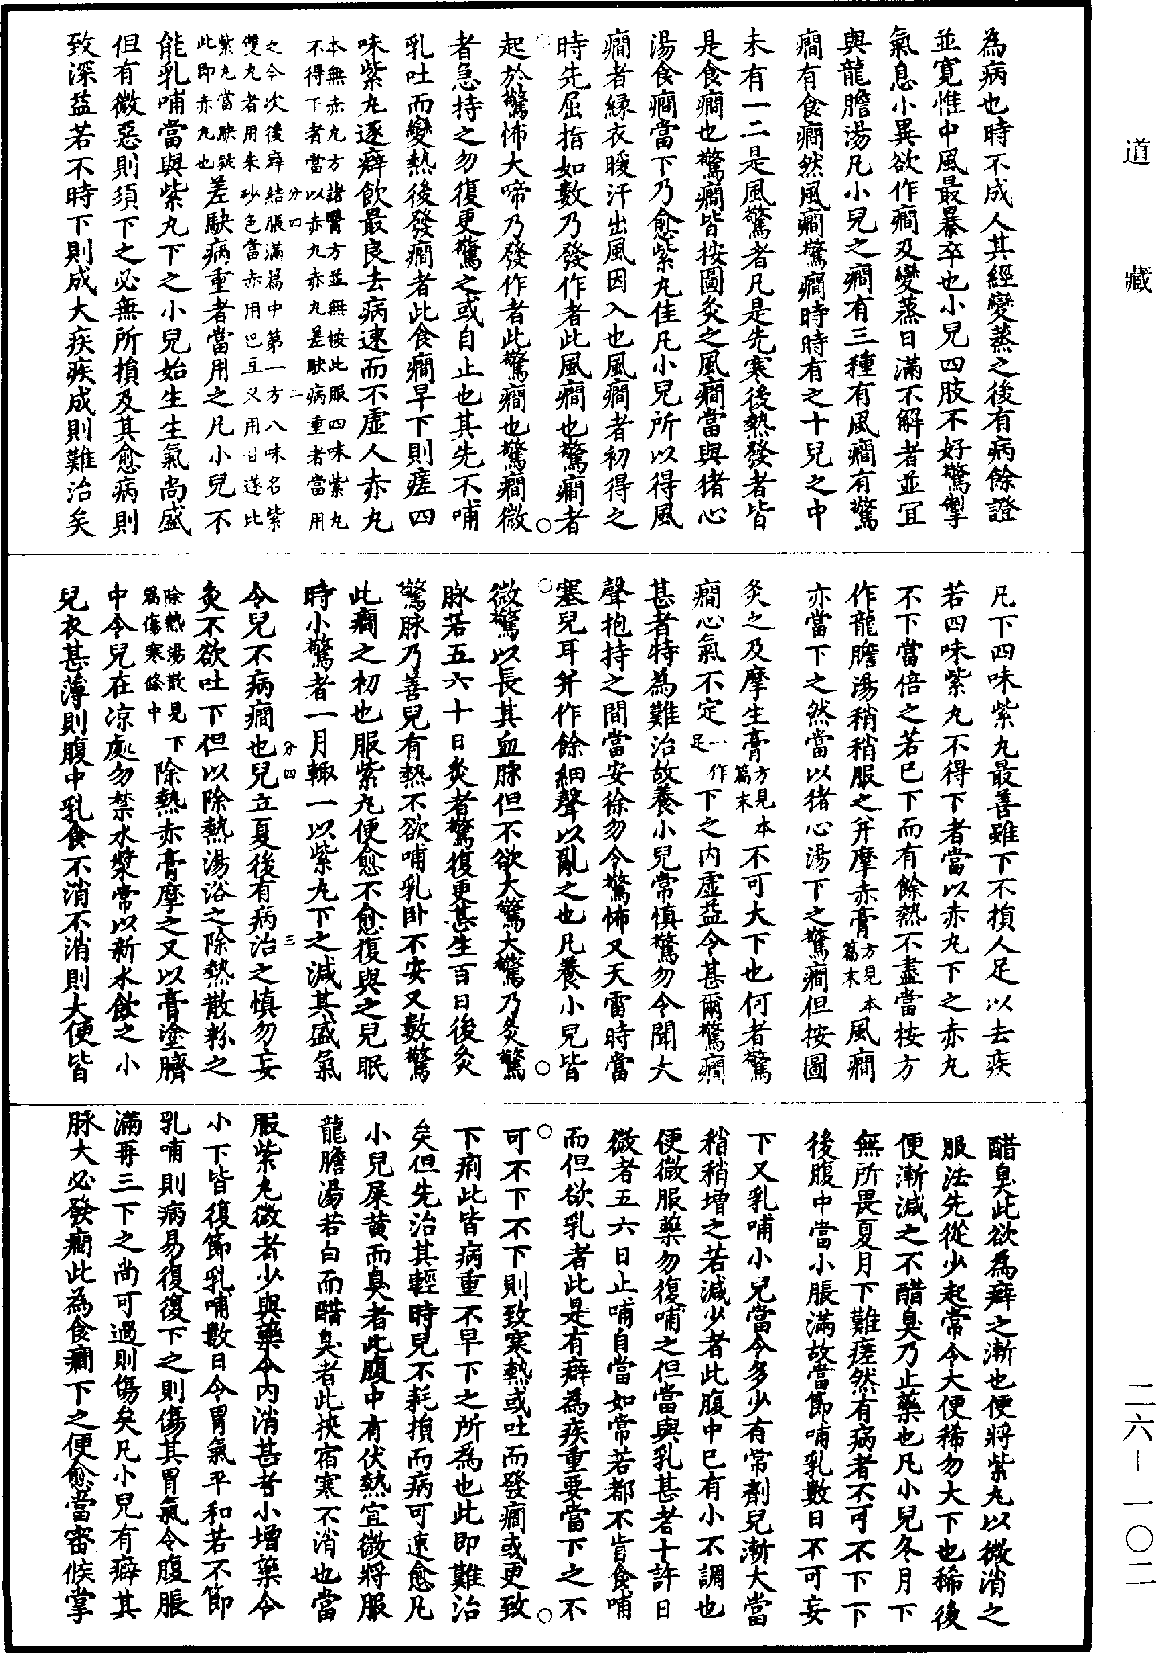 道藏
二六—一〇二
為病也時不成人其經變蒸之後有病餘證
並寬惟中風最暴卒也小兒四肢不好驚掣
氣息小異欲作癎及變蒸日滿不解者並宜
與龍膽湯凡小兒之癎有三種有風癎有驚
癎有食癎然風癎驚癎時時有之十兒之中
未有一二是風驚者凡是先寒後熱發者皆
是食癎也驚癎皆按圖灸之風癎當與猪心
湯食癎當下乃愈紫丸佳凡小兒所以得風
癎者緣衣暖汗出風因入也風癎者初得之
時先屈指如數乃發作者此風癎也驚癎者
起於驚怖大啼乃發作者此驚癎也驚癎微
者急持之勿復更驚之或自止也其先不哺
乳吐而變熱後發癎者此食癎早下則瘥四
味紫丸逐癖飲最良去病速而不虛人赤丸
本無赤丸方諸醫方並無按此服四味紫丸
不得下者當以赤丸赤丸差駃病重者當用
之今次後癖結脹滿篇中第一方八味名紫
雙丸者用朱砂色當赤用巴豆又用甘遂比
紫丸當駃疑
此即赤丸也差駃病重者當用之凡小兒不
能乳哺當與紫丸下之小兒始生生氣尚盛
但有微惡則須下之必無所損及其愈病則
致深益若不時下則成大疾疾成則難治矣
凡下四味紫丸最善雖下不損人足以去疾
若四味紫丸不得下者當以赤丸下之赤丸
不下當倍之若已下而有餘熱不盡當按方
作龍膽湯稍稍服之并摩赤膏方見本篇末風癎
亦當下之然當以猪心湯下之驚癎但按圖
灸之及摩生膏方見本篇末不可大下也何者驚
癎心氣不定一作足下之內虛益令甚爾驚癎
甚者特為難治故養小兒常慎驚勿令聞大
聲抱持之間當安徐勿令驚怖又天雷時當
塞兒耳并作餘細聲以亂之也凡養小兒皆
微驚以長其血脉但不欲大驚大驚乃灸驚
脉若五六十日灸者驚復更甚生百日後灸
驚脉乃善兒有熱不欲哺乳卧不安又數驚
此癎之初也服紫丸便愈不愈復與之兒眠
時小驚者一月輒一以紫丸下之減其盛氣
令兒不病癎也兒立夏後有病治之慎勿妄
灸不欲吐下但以除熱湯浴之除熱散粉之
除熱湯散見下
篇傷寒條中除熱赤膏摩之又以膏塗臍
中令兒在涼處勿禁水漿常以新水飲之小
兒衣甚薄則腹中乳食不消不消則大便皆
醋臭此欲為癖之漸也便將紫丸以微消之
服法先從少起常令大便稀勿大下也稀後
便漸減之不醋臭乃止藥也凡小兒冬月下
無所畏夏月下難瘥然有病者不可不下下
後腹中當小脹滿故當節哺乳數日不可妄
下又乳哺小兒當令多少有常劑兒漸大當
稍稍增之若減少者此腹中已有小不調也
便微服藥勿復哺之但當與乳甚者十許日
微者五六日止哺自當如常若都不肯食哺
而但欲乳者此是有癖為疾重要當下之不
可不下不下則致寒熱或吐而發癎或更致
下痢此皆病重不早下之所為也此即難治
矣但先治其輕時兒不耗損而病可速愈凡
小兒屎黃而臭者此腹中有伏熱宜微將服
龍膽湯若白而醋臭者此挾宿寒不消也當
服紫丸微者少與藥令內消甚者小增藥令
小下皆復節乳哺數日令胃氣平和若不節
乳哺則病易復復下之則傷其胃氣令腹脹
滿再三下之尚可過則傷矣凡小兒有癖其
脉大必發癎此為食癎下之便愈當審候掌